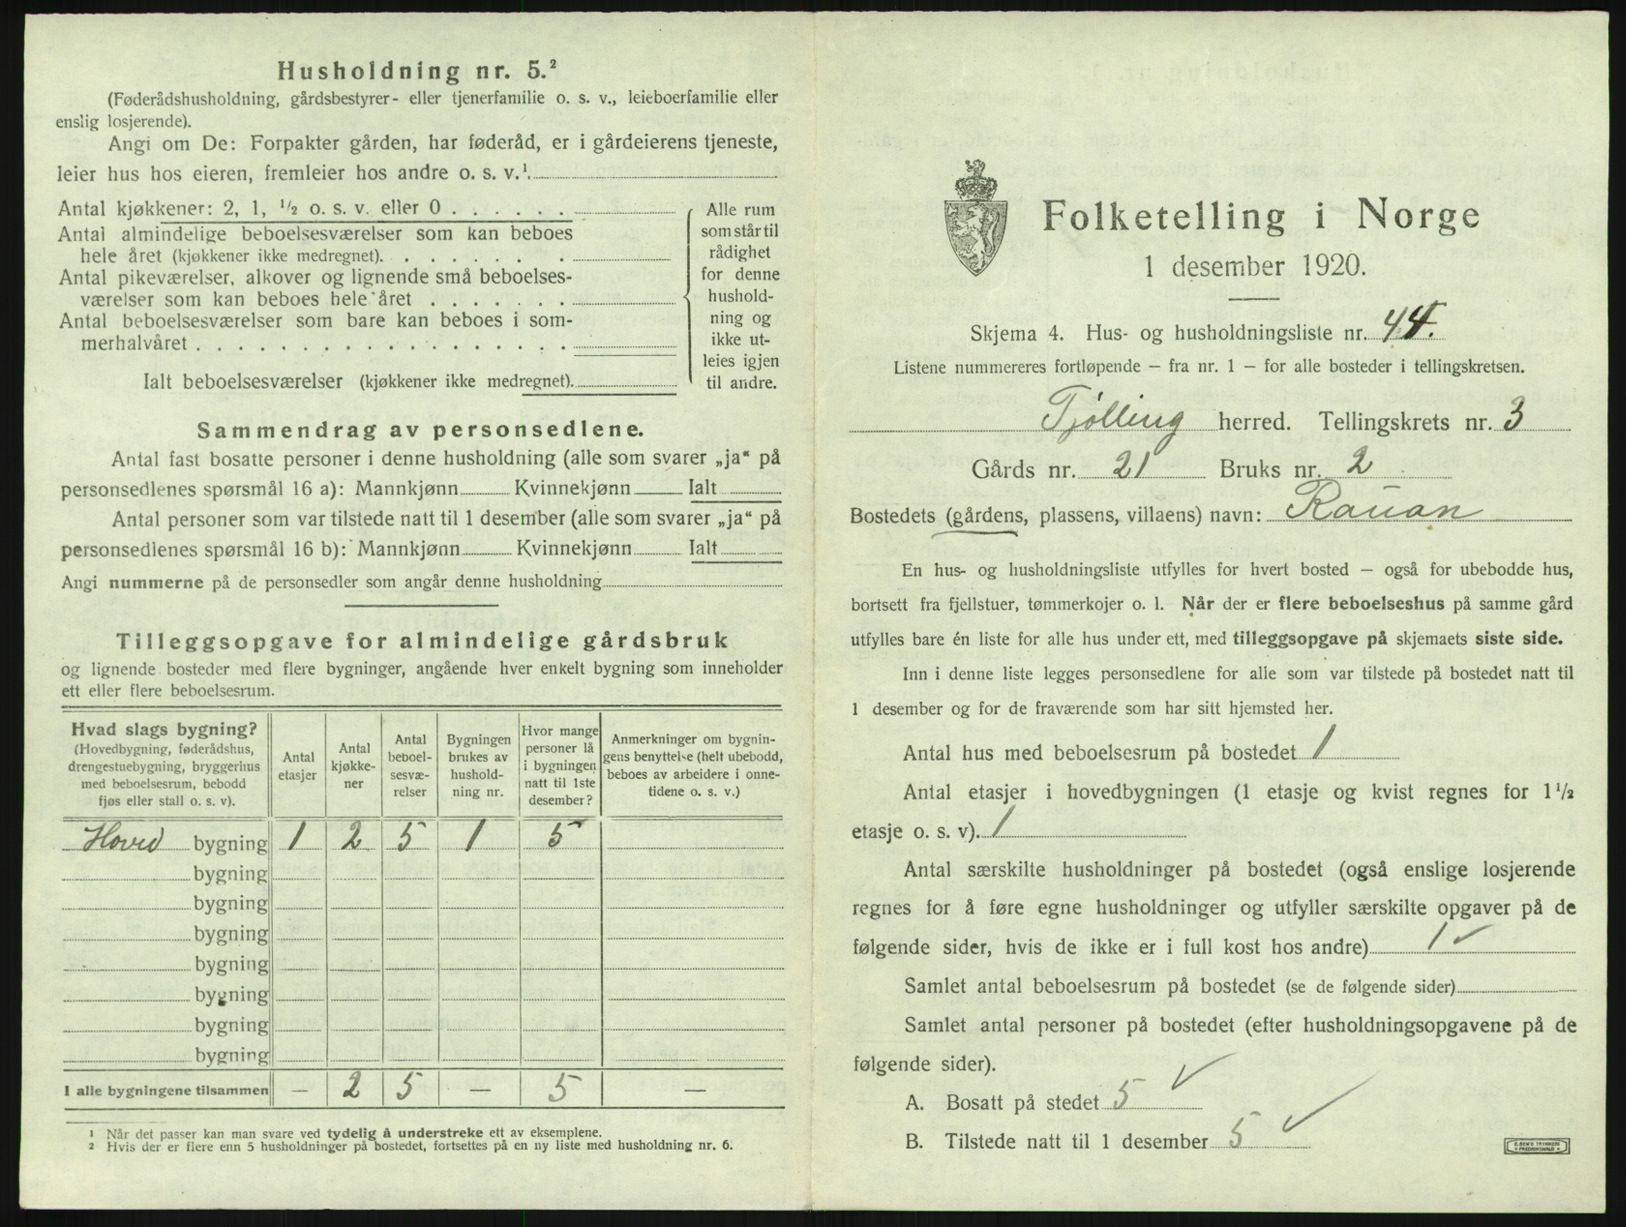 Husholdning nr. 5.²
(Føderådshusholdning, gårdsbestyrer- eller tjenerfamilie o. s. v., leieboerfamilie eller
enslig losjerende).
Angi om De: Forpakter gården, har føderåd, er i gårdeierens tjeneste,
leier hus hos eieren, fremleier hos andre o. s. v.¹
Antal kjøkkener: 2, 1, ½ o. s. v. eller 0
Antal almindelige beboelsesværelser som kan beboes
hele året (kjøkkener ikke medregnet)
Antal pikeværelser, alkover og lignende små beboelses-
værelser som kan beboes hele året
Antal beboelsesværelser som bare kan beboes i som-
merhalvåret
Ialt beboelsesværelser (kjøkkener ikke medregnet)
Alle rum
som står til
rådighet
for denne
hushold-
ning og
ikke ut-
leies igjen
til andre.
Sammendrag av personsedlene.
Antal fast bosatte personer i denne husholdning (alle som svarer „ja“ på
personsedlenes spørsmål 16 a): Mannkjønn Kvinnekjønn Ialt
Antal personer som var tilstede natt til 1 desember (alle som svarer „ja“ på
personsedlenes spørsmål 16 b): Mannkjønn Kvinnekjønn Ialt
Angi nummerne på de personsedler som angår denne husholdning
Tilleggsopgave for almindelige gårdsbruk
og lignende bosteder med flere bygninger, angående hver enkelt bygning som inneholder
ett eller flere beboelsesrum.
Hvad slags bygning?
(Hovedbygning, føderådshus,
drengestuebygning, bryggerhus
med beboelsesrum, bebodd
fjøs eller stall o. s. v).
Antal
etasjer
Antal
kjøkke-
ner
Antal
beboel-
sesvæ-
relser
Bygningen
brukes av
hushold-
ning nr.
Hvor mange
personer lå
i bygningen
natt til 1ste
desember?
Anmerkninger om bygnin-
gens benyttelse (helt ubebodd,
beboes av arbeidere i onne-
tidene o. s. v.)
Hoved bygning 1 2 5 1 5
bygning
bygning
bygning
bygning
bygning
bygning
bygning
I alle bygningene tilsammen — 2 5 — 5 —
¹ Når det passer kan man svare ved tydelig å understreke ett av eksemplene.
² Hvis der er flere enn 5 husholdninger på bostedet, fortsettes på en ny liste med husholdning nr. 6.
Folketelling i Norge
1 desember 1920.
Skjema 4. Hus- og husholdningsliste nr. 44.
Listene nummereres fortløpende — fra nr. 1 — for alle bosteder i tellingskretsen.
Tjølling herred. Tellingskrets nr. 3
Gårds nr. 21 Bruks nr. 2
Bostedets (gårdens, plassens, villaens) navn: Rauan
En hus- og husholdningsliste utfylles for hvert bosted — også for ubebodde hus,
bortsett fra fjellstuer, tømmerkojer o. l. Når der er flere beboelseshus på samme gård
utfylles bare én liste for alle hus under ett, med tilleggsopgave på skjemaets siste side.
Inn i denne liste legges personsedlene for alle som var tilstede på bostedet natt til
1 desember og for de fraværende som har sitt hjemsted her.
Antal hus med beboelsesrum på bostedet 1
Antal etasjer i hovedbygningen (1 etasje og kvist regnes for 1½
etasje o. s. v). 1
Antal særskilte husholdninger på bostedet (også enslige losjerende
regnes for å føre egne husholdninger og utfyller særskilte opgaver på de
følgende sider, hvis de ikke er i full kost hos andre) 1 ✓
Samlet antal beboelsesrum på bostedet (se de følgende sider)
Samlet antal personer på bostedet (efter husholdningsopgavene på de
følgende sider).
A. Bosatt på stedet 5 ✓
B. Tilstede natt til 1 desember 5 ✓